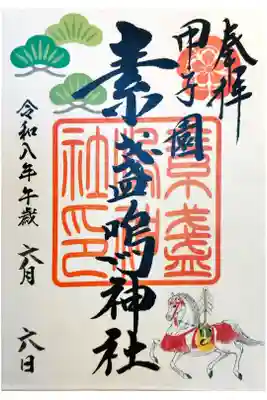 奉拝
甲子園
素盞嗚神社
令和八年午歳 六月 六日
素盞
嗚神
社印